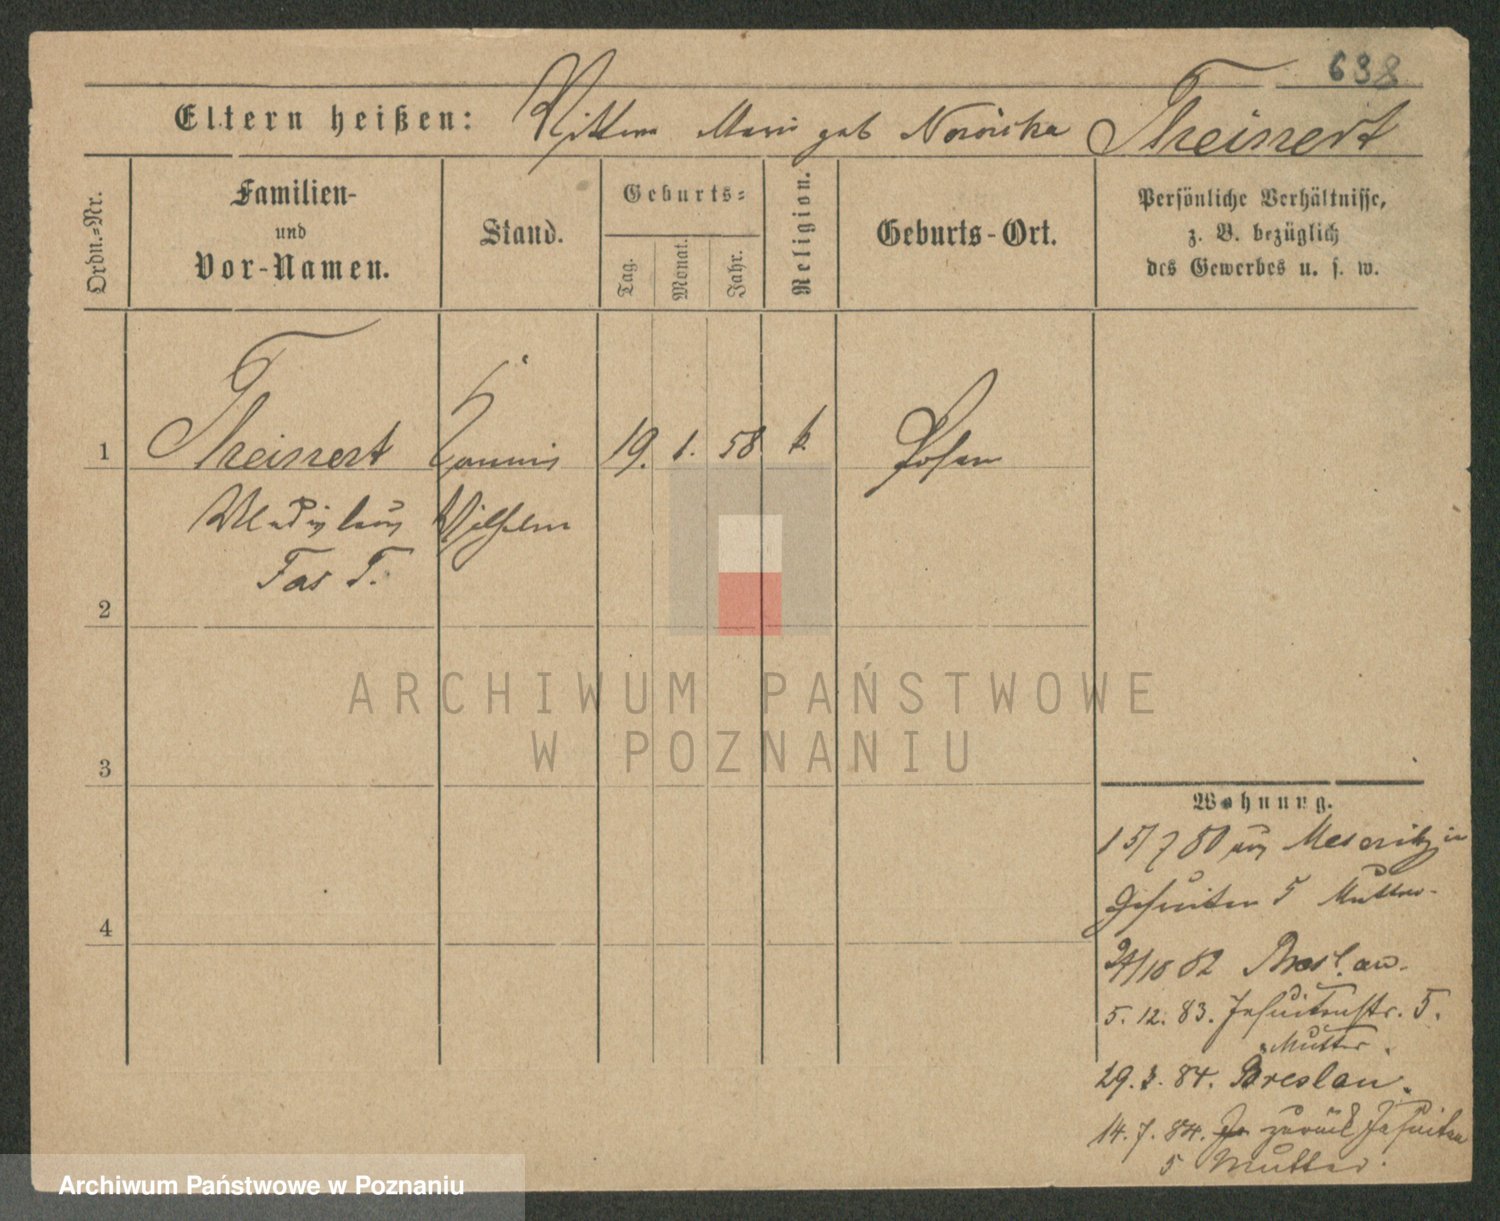 638
Eltern heißen: Wittwe Marie geb Theinert
Ordn.-Nr.
Familien-
und
Vor-Namen.
Stand.
Geburts-
Tag.
Monat.
Jahr.
Religion.
Geburts-Ort.
Persönliche Verhältnisse,
z. B. bezüglich
des Gewerbes u. s. w.
1 Theinert Commis 19. 1. 58 k. Posen
Wladislaus Wilhelm
T.
2
3
4
ARCHIWUM PAŃSTWOWE
W POZNANIU
Wohnung.
15/7 80 aus Meseritz in
Jesuiten 5 Mutter
24/10 82 Breslau.
5. 12. 83. Jesuitenstr. 5.
Mutter.
29. 3. 84. Breslau.
14. 7. 84. zurück Jesuiten
5 Mutter.
Archiwum Państwowe w Poznaniu